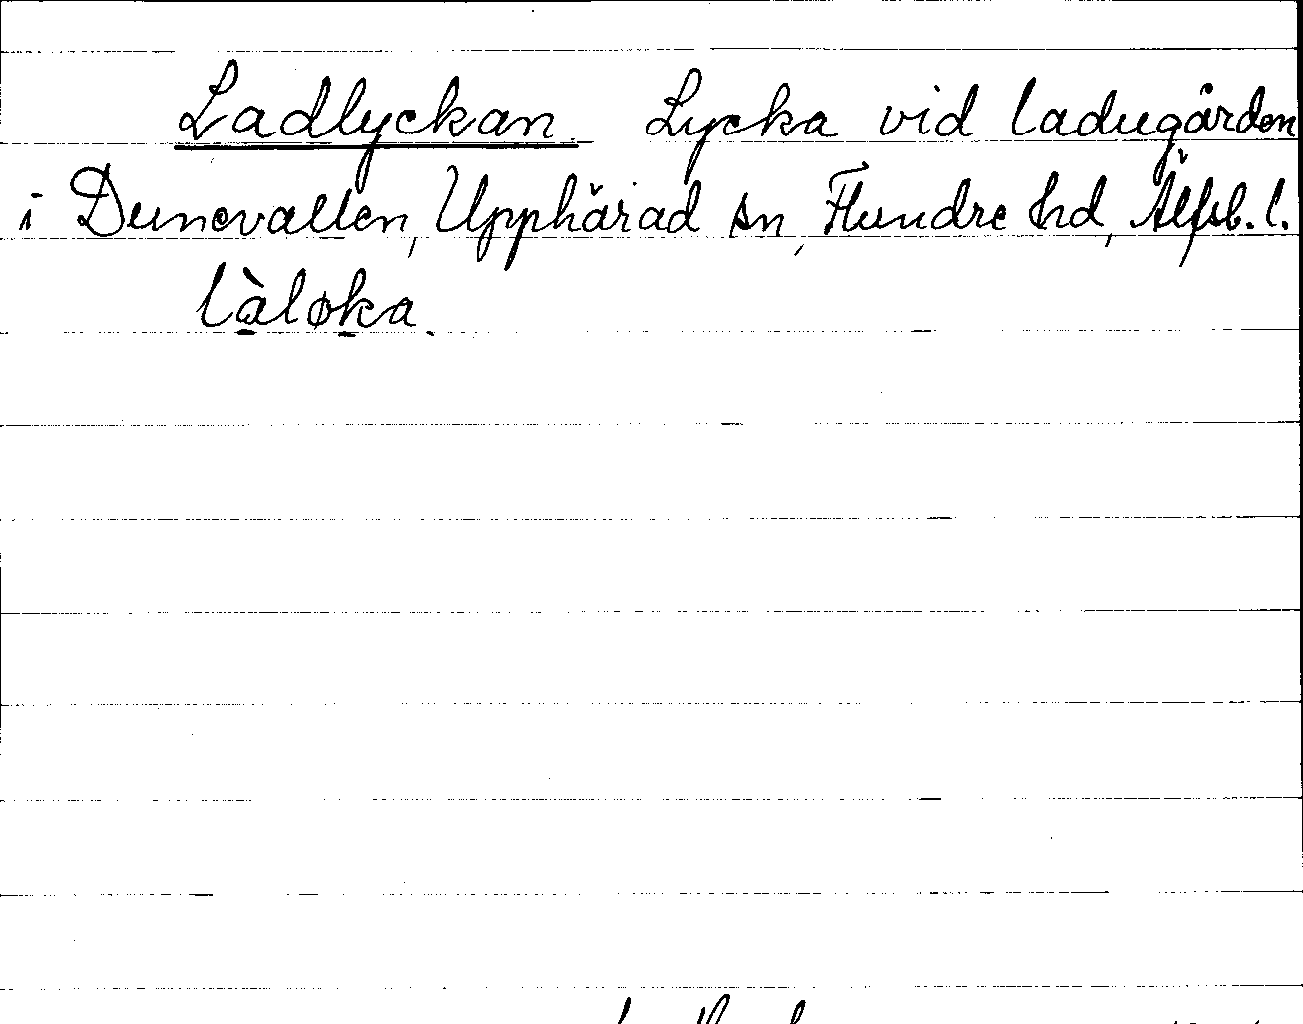 Ladlyckan. Lycka vid ladugården
i Dunevallen, Upphärad sn, Flundre hd, Älfsb. l.
làləka.